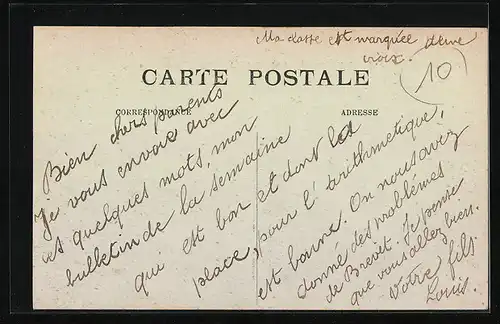 Ma classe est marquée d'une
croix.
(10)
CARTE POSTALE
CORRESPONDANCE
ADRESSE
Bien chers parents
Je vous envoie avec
ces quelques mots, mon
bulletin de la semaine
qui est bon et dont la
place, pour l'arithmetique,
est bonne. On nous avez
donné des problèmes
de Brevêt. Je pense
que vous allez bien.
Votre fils.
Louis.